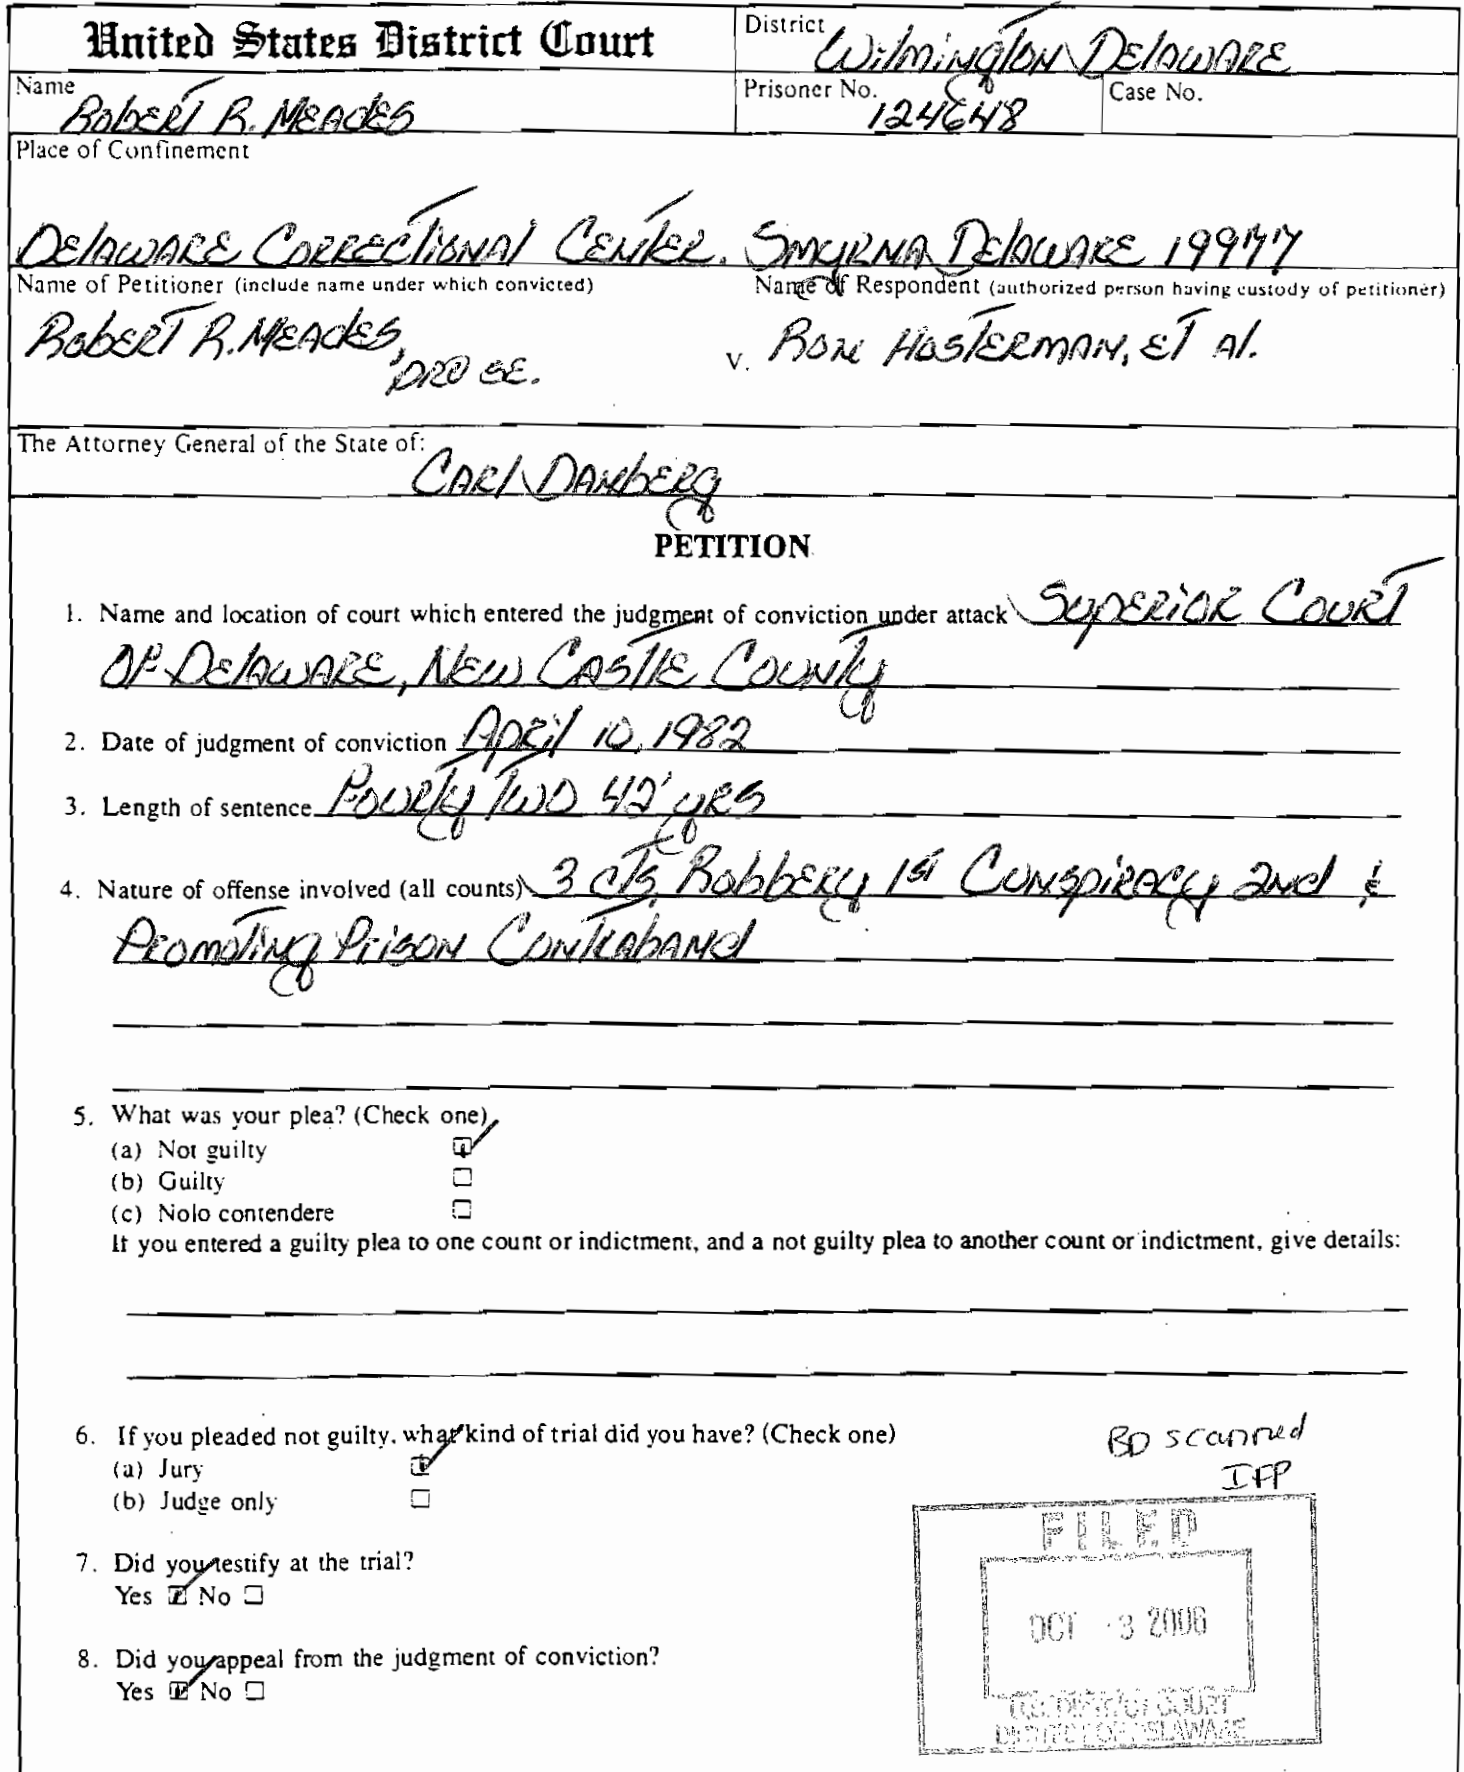 United States District Court
District
Wilmington Delaware
Name
Robert R. Meades
Prisoner No.
124648
Case No.
Place of Confinement
Delaware Correctional Center, Smyrna Delaware 19977
Name of Petitioner (include name under which convicted)
Name of Respondent (authorized person having custody of petitioner)
Robert R. Meades, pro se.
v.
Ron Hosterman, et al.
The Attorney General of the State of:
Carl Danberg
PETITION
1. Name and location of court which entered the judgment of conviction under attack Superior Court
of Delaware, New Castle County
2. Date of judgment of conviction April 10, 1982
3. Length of sentence Fourty Two 42' yrs
4. Nature of offense involved (all counts) 3 cts, Robbery 1st Conspiracy 2nd &
Promoting Prison Contraband
5. What was your plea? (Check one)
(a) Not guilty
(b) Guilty
(c) Nolo contendere
If you entered a guilty plea to one count or indictment, and a not guilty plea to another count or indictment, give details:
6. If you pleaded not guilty, what kind of trial did you have? (Check one)
(a) Jury
(b) Judge only
BD scanned
IFP
7. Did you testify at the trial?
Yes No
8. Did you appeal from the judgment of conviction?
Yes No
FILED
OCT -3 2006
U.S. DISTRICT COURT
DISTRICT OF DELAWARE